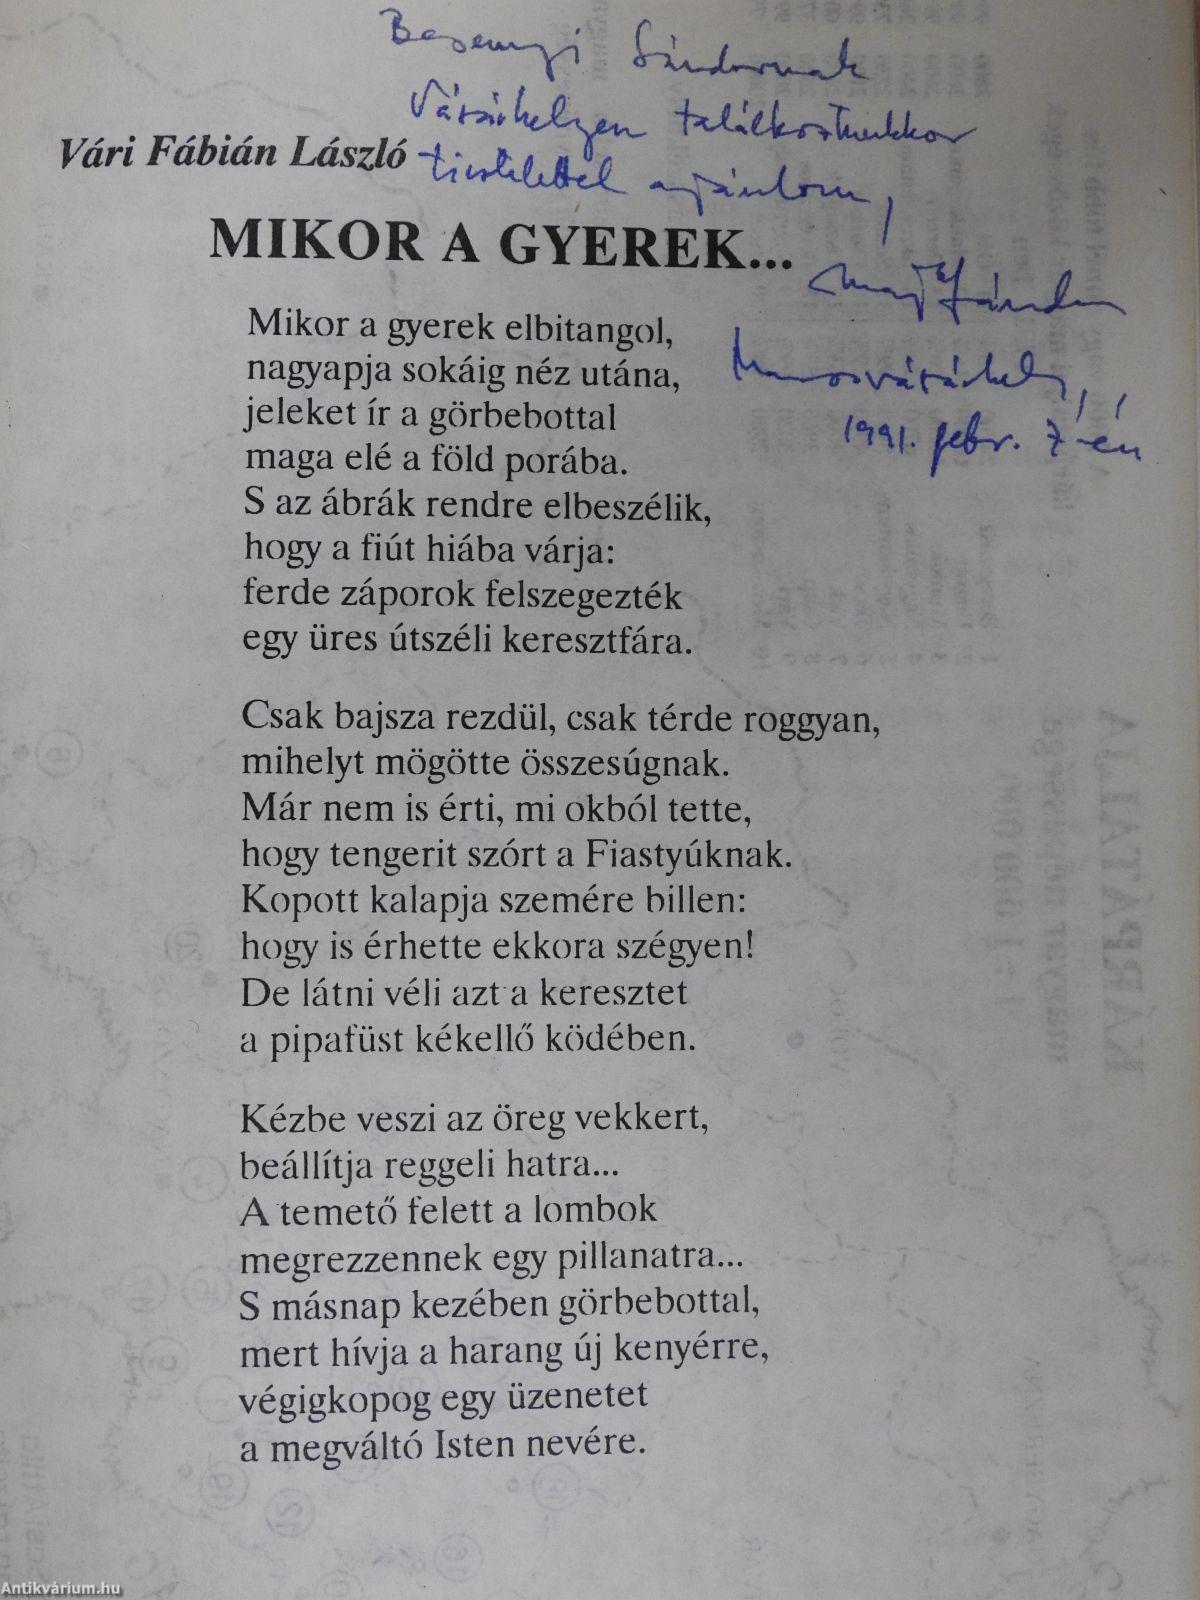 Besenyi Sándornak
Vásárhelyen találkoztunkkor
tisztelettel ajánlom,
Marosvásárhely,
1991. febr. 7-én
Vári Fábián László
MIKOR A GYEREK...
Mikor a gyerek elbitangol,
nagyapja sokáig néz utána,
jeleket ír a görbebottal
maga elé a föld porába.
S az ábrák rendre elbeszélik,
hogy a fiút hiába várja:
ferde záporok felszegezték
egy üres útszéli keresztfára.
Csak bajsza rezdül, csak térde roggyan,
mihelyt mögötte összesúgnak.
Már nem is érti, mi okból tette,
hogy tengerit szórt a Fiastyúknak.
Kopott kalapja szemére billen:
hogy is érhette ekkora szégyen!
De látni véli azt a keresztet
a pipafüst kékellő ködében.
Kézbe veszi az öreg vekkert,
beállítja reggeli hatra...
A temető felett a lombok
megrezzennek egy pillanatra...
S másnap kezében görbebottal,
mert hívja a harang új kenyérre,
végigkopog egy üzenetet
a megváltó Isten nevére.
Antikvárium.hu